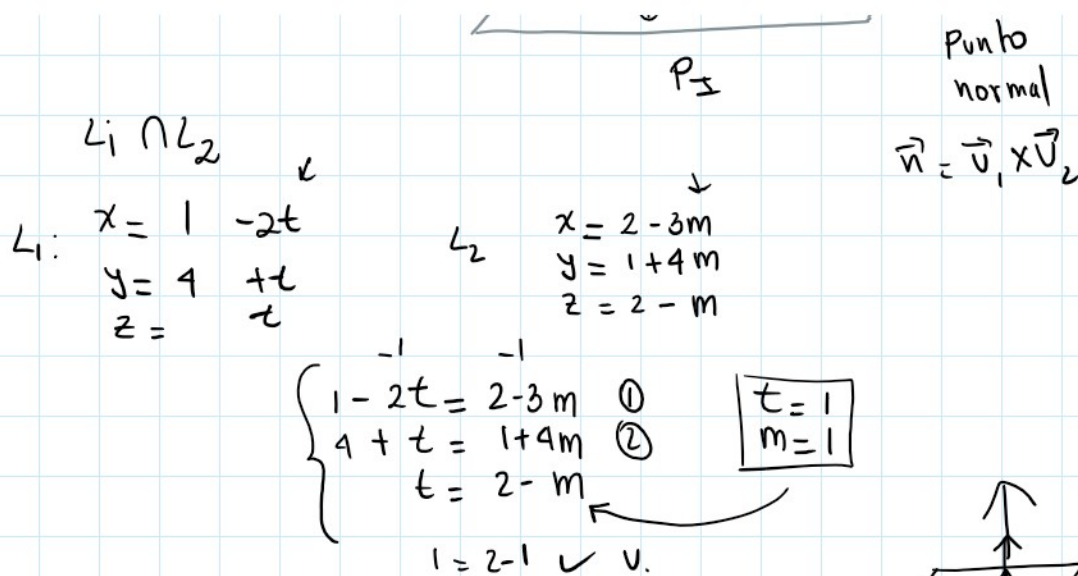 Punto
normal
P_I
n⃗ = v⃗₁ × v⃗₂
L₁ ∩ L₂
L₁: x = 1 -2t
y = 4 +t
z = t
L₂ x = 2 - 3m
y = 1 + 4m
z = 2 - m
-1 -1
1 - 2t = 2 - 3m ①
4 + t = 1 + 4m ②
t = 2 - m
t = 1
m = 1
1 = 2 - 1 ✓ v.